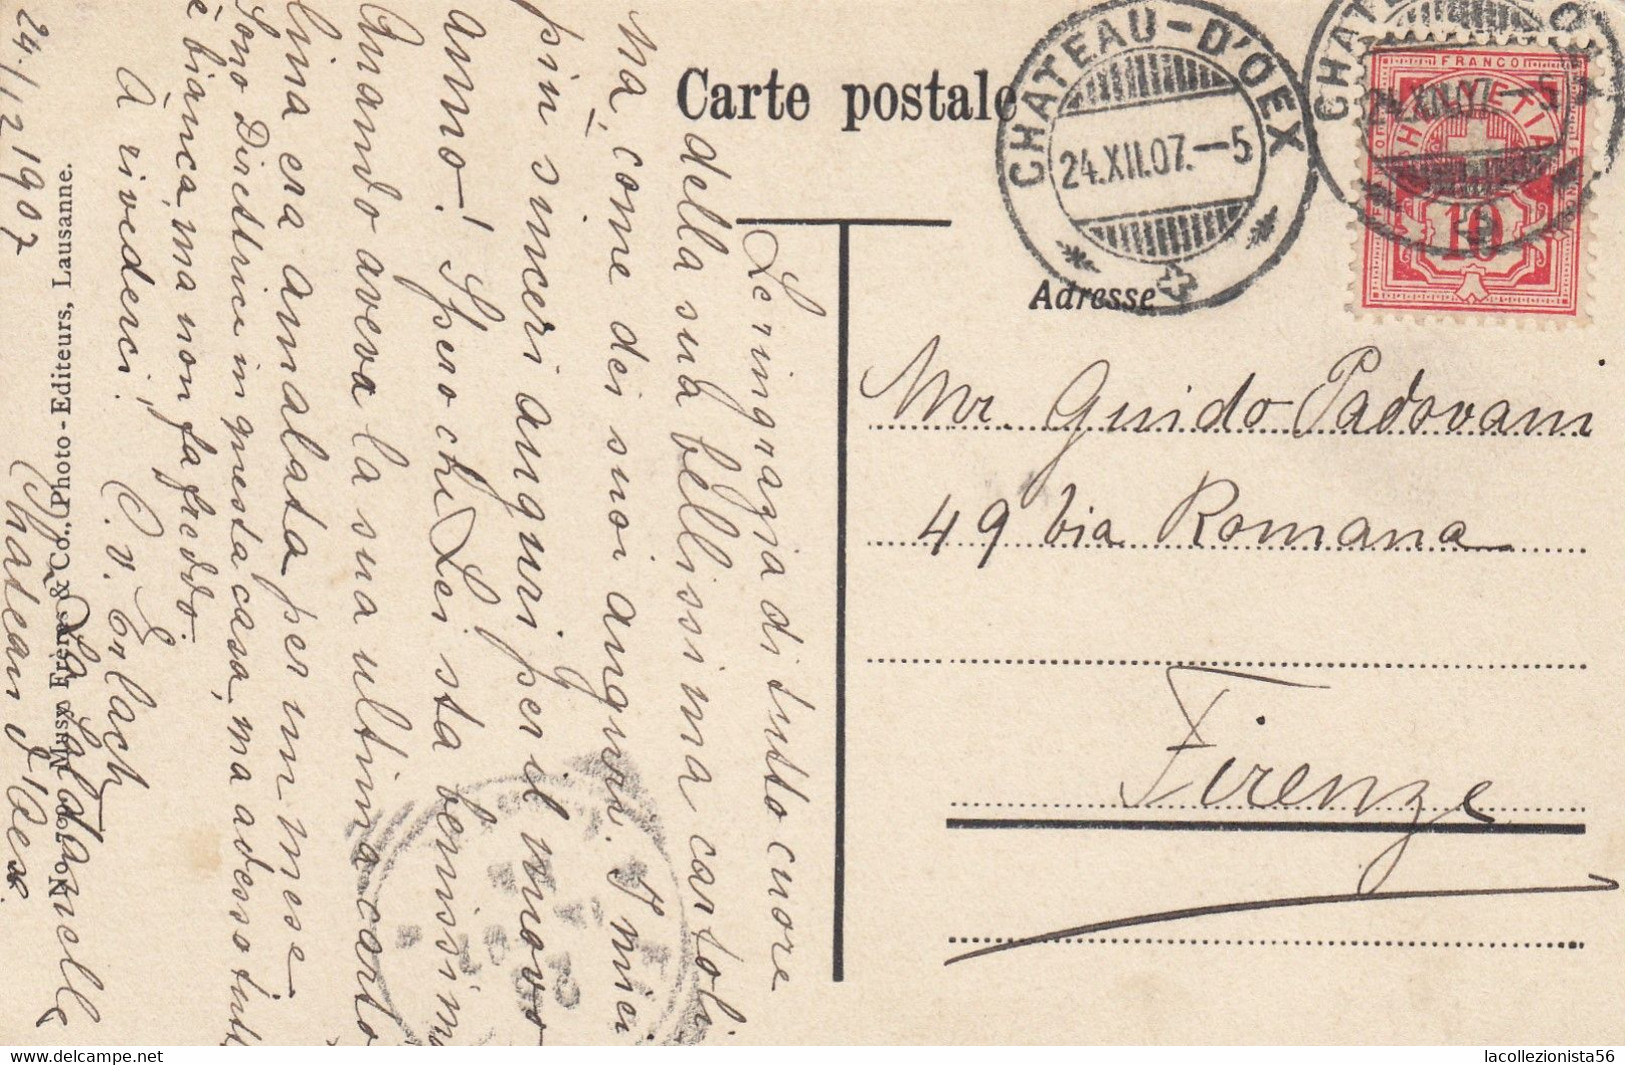 Carte postale
CHATEAU-D'OEX
24.XII.07.-5
CHATEAU-D'OEX
24.XII.07.-5
FRANCO
HELVETIA
10
Adresse
Mr. Guido Padovani
49 via Romana
Firenze
Le ringrazia di tutto cuore
della sua bellissima cartoli
na, come dei suoi auguri. I miei
più sinceri auguri per il nuovo
anno! Spero che Lei sta benissimo
Quando aveva la sua ultima carto
lina era amalata per un mese
Sono Directrice in questa casa, ma adesso tutto
è bianca, ma non fa freddo.
À rivederci,
C. v. Erlach
La Soldanelle
Château d'Oex.
24./12 1907
No. Musy Frères & Co., Photo-Editeurs, Lausanne.
lacollezionista56
www.delcampe.net